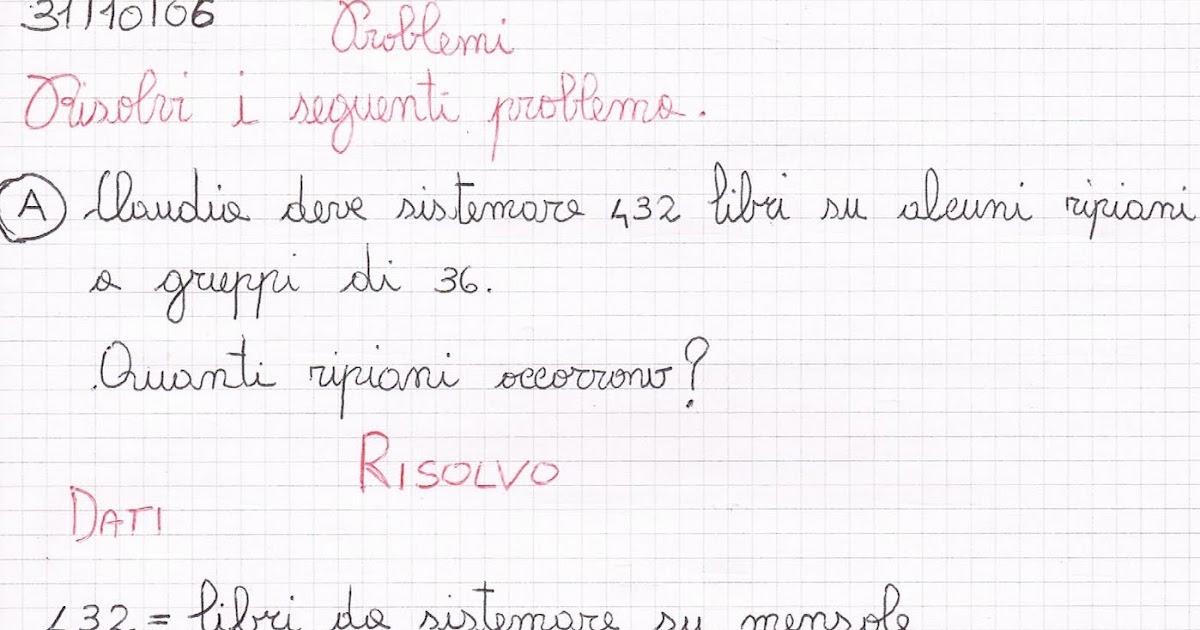 31/10/06
Problemi
Risolvi i seguenti problema.
A Claudia deve sistemare 432 libri su alcuni ripiani
a gruppi di 36.
Quanti ripiani occorrono?
RISOLVO
DATI
432 = libri da sistemare su mensole